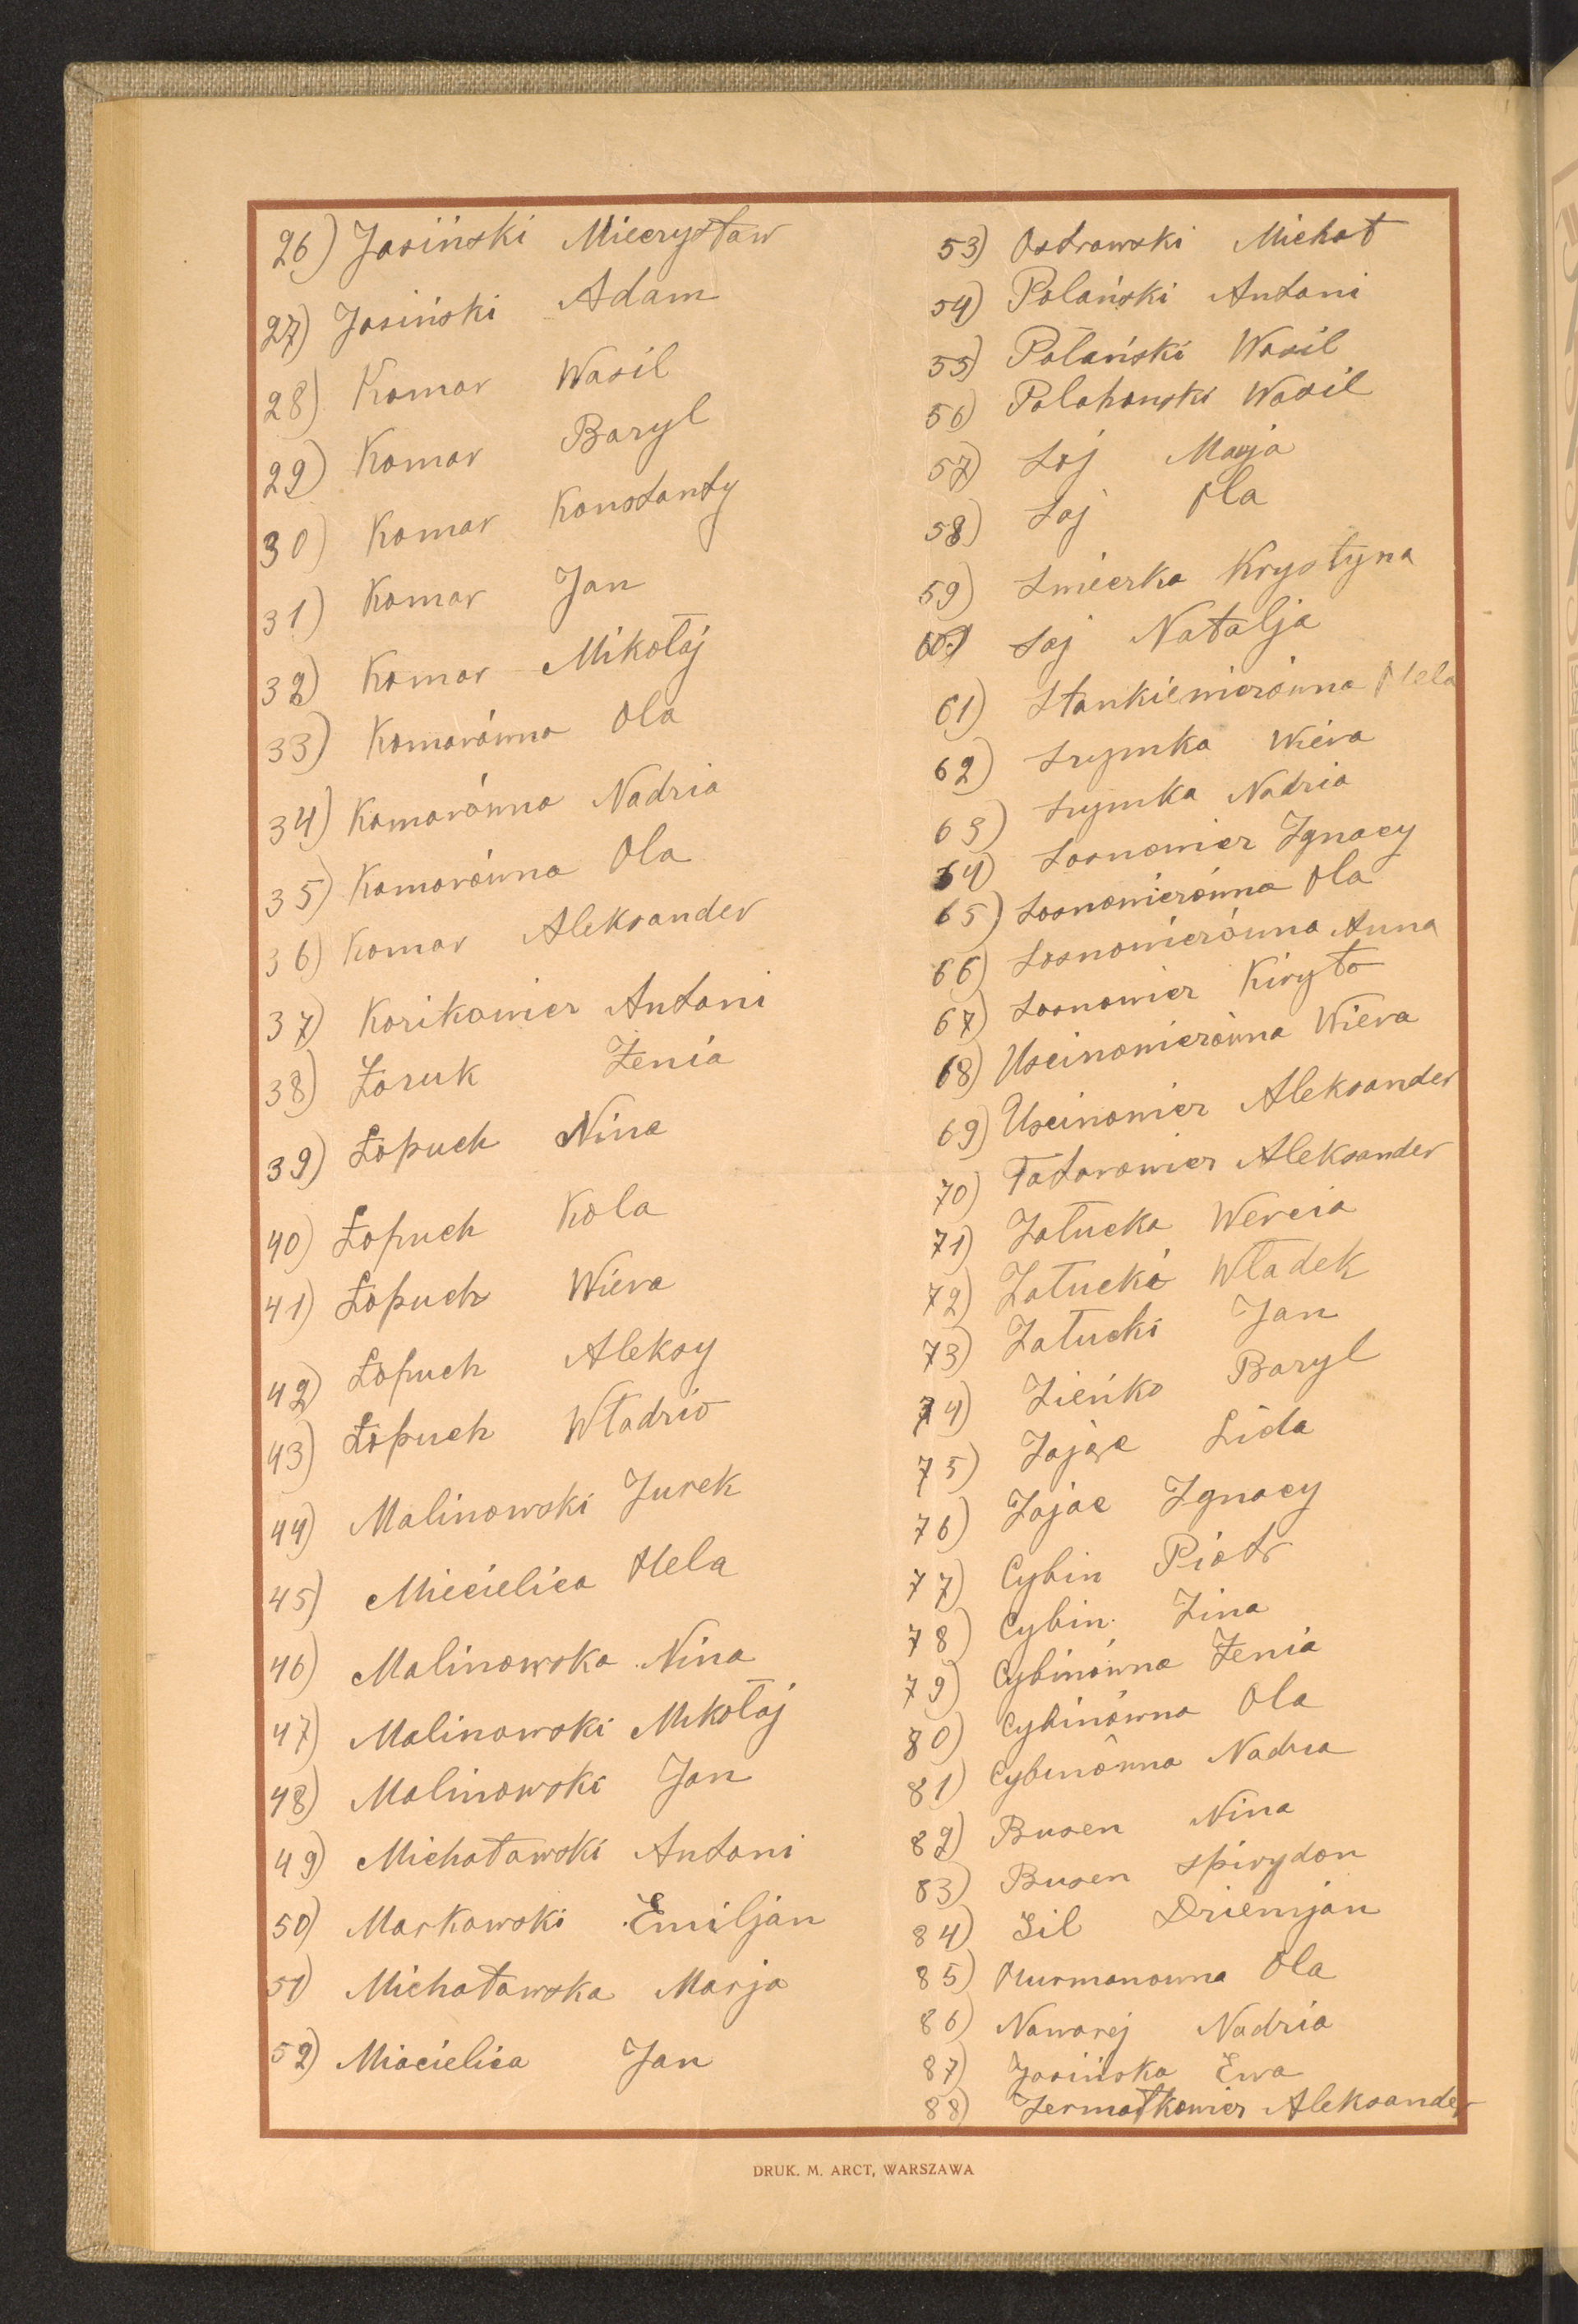 26) Jasiński Mieczysław
27) Jasiński Adam
28) Komar Wasil
29) Komar Bazyl
30) Komar Konstanty
31) Komar Jan
32) Komar Mikołaj
33) Komarówna Ola
34) Komarówna Nadzia
35) Komarówna Ola
36) Komar Aleksander
37) Kozikowicz Antoni
38) Łozuk Żenia
39) Łopuch Nina
40) Łopuch Kola
41) Łopuch Wiera
42) Łopuch Aleksy
43) Łopuch Władzio
44) Malinowski Jurek
45) Miecielica Mela
46) Malinowska Nina
47) Malinowski Mikołaj
48) Malinowski Jan
49) Michałowski Antoni
50) Markowski Emiljan
51) Michałowska Marja
52) Miecielica Jan
53) Ostrowski Michał
54) Polański Antoni
55) Polański Wasil
56) Polahowski Wasil
57) Soj Marja
58) Soj Ola
59) Smieczka Krystyna
60) Soj Natalja
61) Stankiewiczówna Mela
62) Szymka Wiera
63) Szymka Nadzia
64) Sosnowicz Ignacy
65) Sosnowiczówna Ola
66) Sosnowiczówna Anna
67) Sosnowicz Kiryło
68) Uscinowiczówna Wiera
69) Uscinowicz Aleksander
70) Tatarowicz Aleksander
71) Załucka Wercia
72) Załucki Władek
73) Załucki Jan
74) Zieńko Bazyl
75) Zając Lida
76) Zajac Ignacy
77) Cybin Piotr
78) Cybin Zina
79) Cybinówna Żenia
80) Cybinówna Ola
81) Cybinówna Nadzia
82) Busen Nina
83) Busen Spirydon
84) Zil Dziemjan
85) Murmanowna Ola
86) Nawarej Nadzia
87) Jasińska Ewa
88) Jermołkowicz Aleksander
DRUK. M. ARCT, WARSZAWA